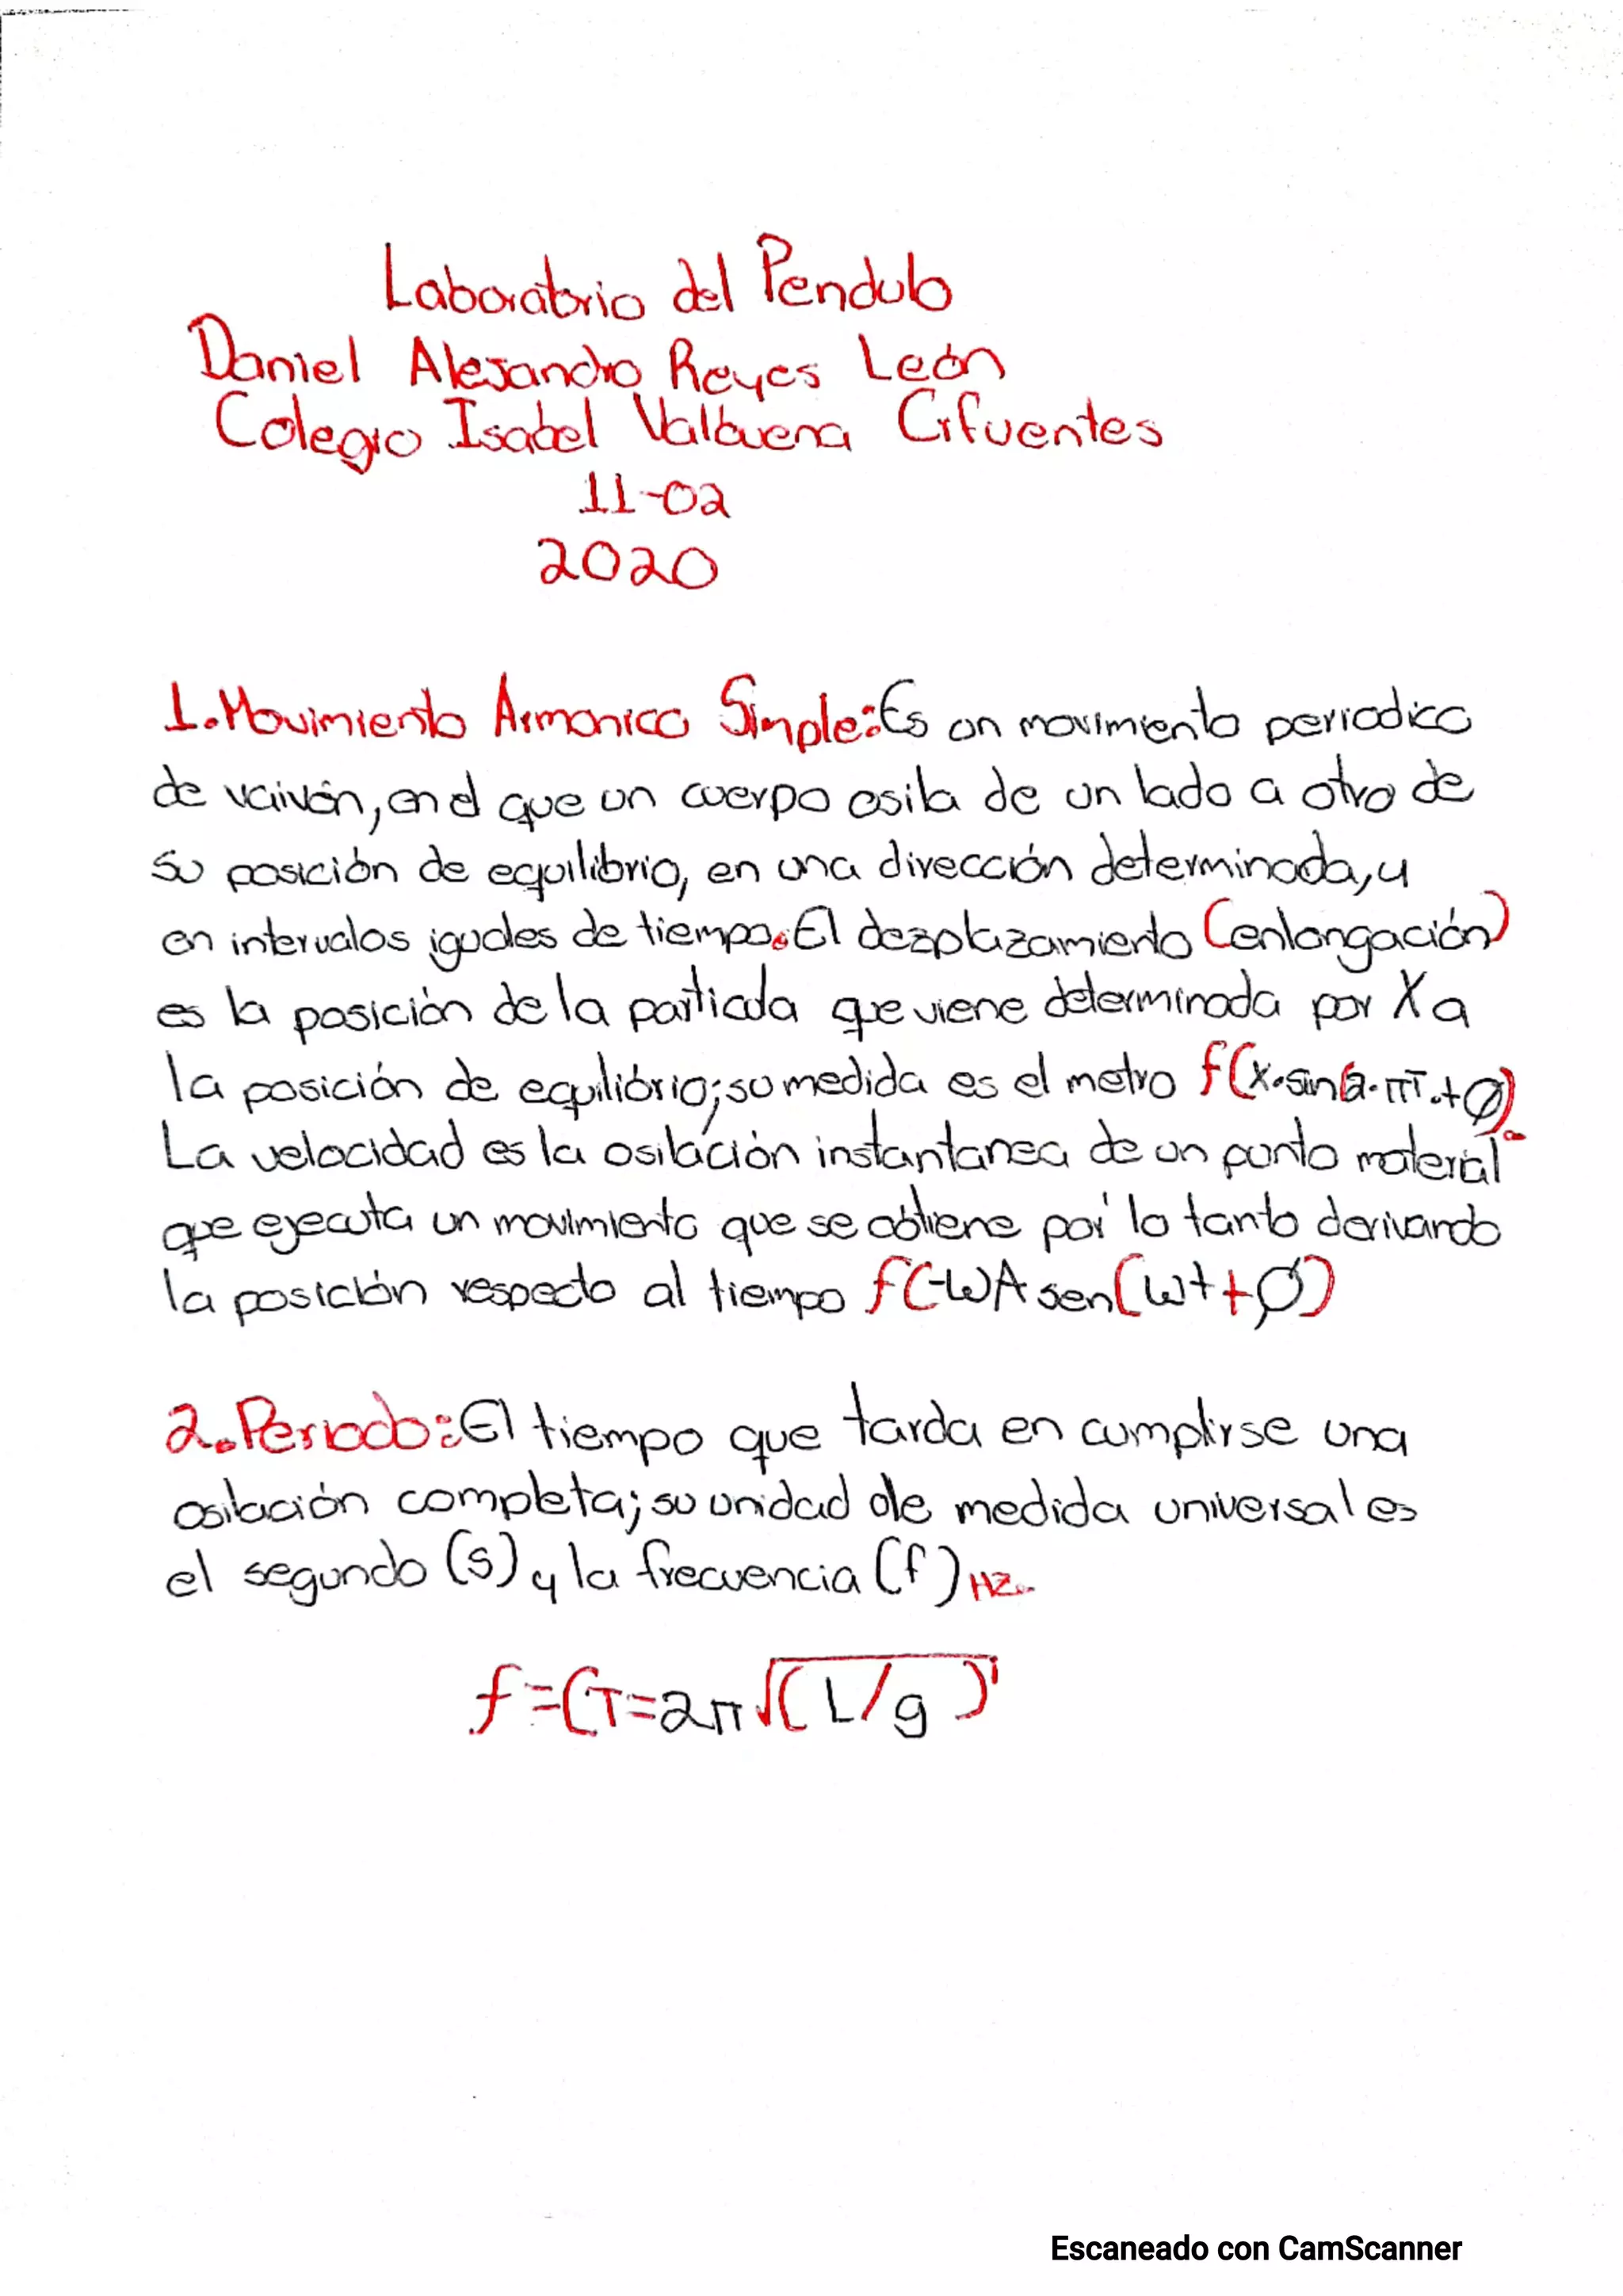 Laboratorio del Pendulo
Daniel Alejandro Reyes León
Colegio Isabel Valbuena Cifuentes
11-02
2020
1.Movimiento Armonico Simple:Es un movimiento periodico
de vaivén, en el que un cuerpo osila de un lado a otro de
su posición de equilibrio, en una dirección determinada, y
en intervalos iguales de tiempo. El dezplazamiento (enlongación)
es la posición de la particula que viene determinada por X a
la posición de equilibrio; su medida es el metro f(x.sin(2.πT.+Ø)
La velocidad es la osilación instantanea de un punto material
que ejecuta un movimiento que se obtiene por lo tanto derivando
la posición respecto al tiempo f(-WA sen(wt+Ø)
2.Periodo:El tiempo que tarda en cumplirse una
osilación completa; su unidad de medida universal es
el segundo (s) y la frecuencia (f) HZ..
f=(T=2π√(L/g)
Escaneado con CamScanner